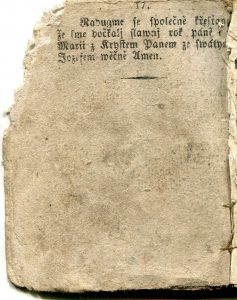 17.
Radugme se společně křesťan
že sme dočkalj slawnj rok páně
Marii z Krystem Panem ze swatym
Jozefem wěčně Amen.